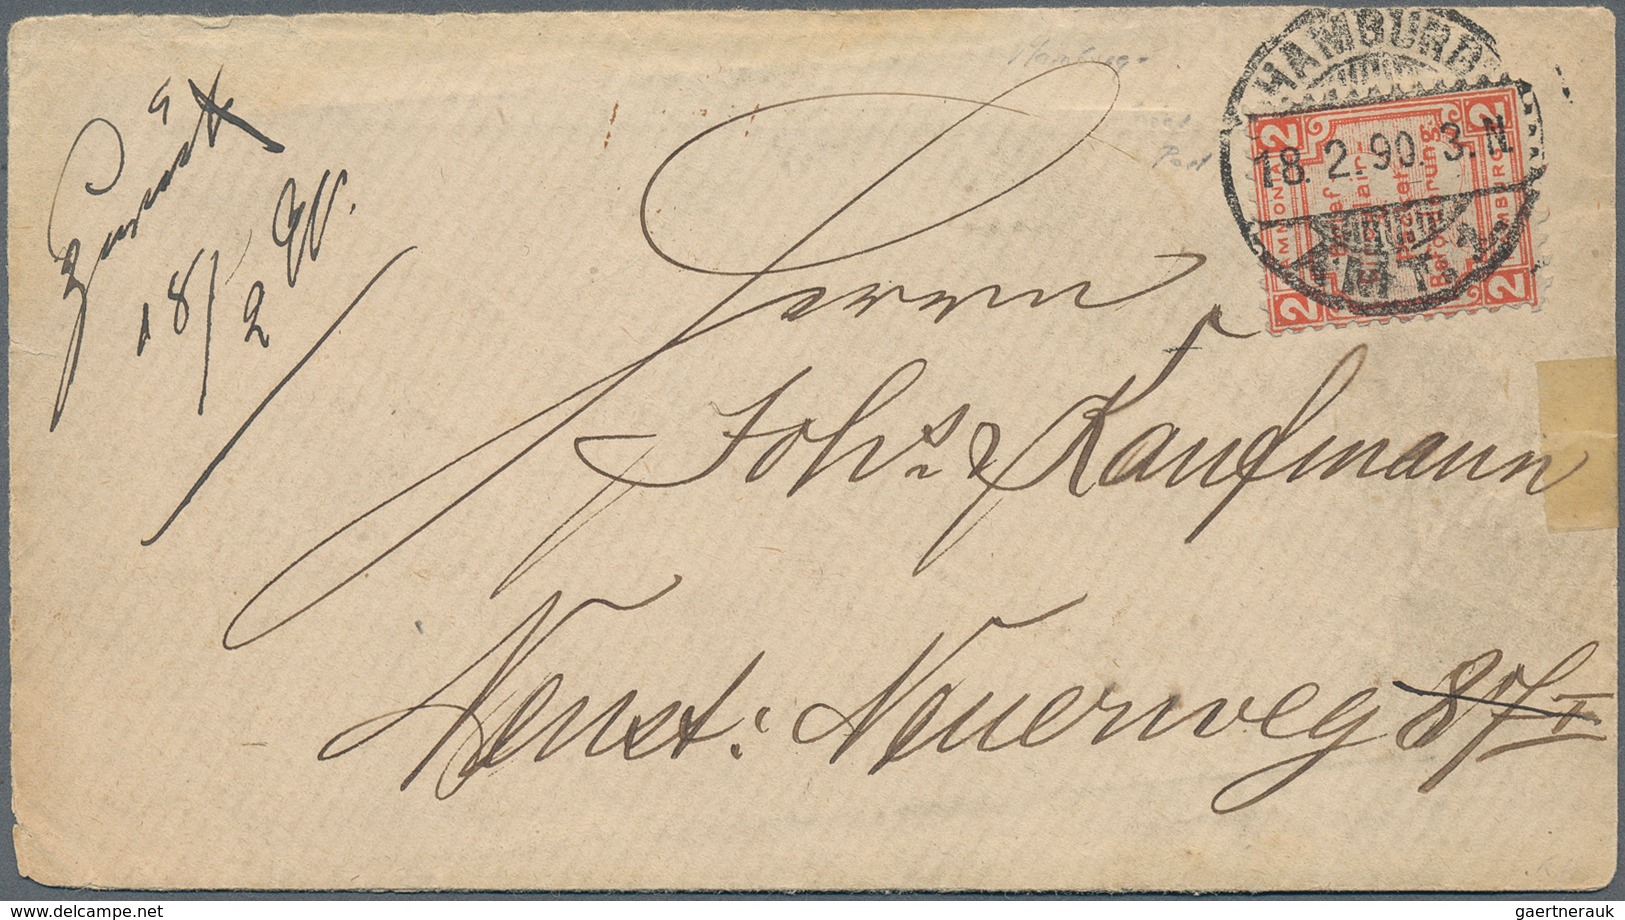 Zurück
18/2 90.
HAMBURG
18. 2. 90. 3. N.
AMT. 
2 HAMMONIA 2
Brief
Packet
Beförderung.
2 HAMBURG 2
Herrn
Johs. Kaufmann
Neust: Neuerweg 87 I
gaertnerauk
delcampe.net